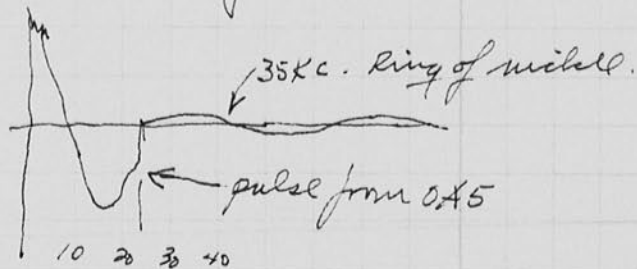 35KC. Ring of nickle.
pulse from OA5
10 20 30 40